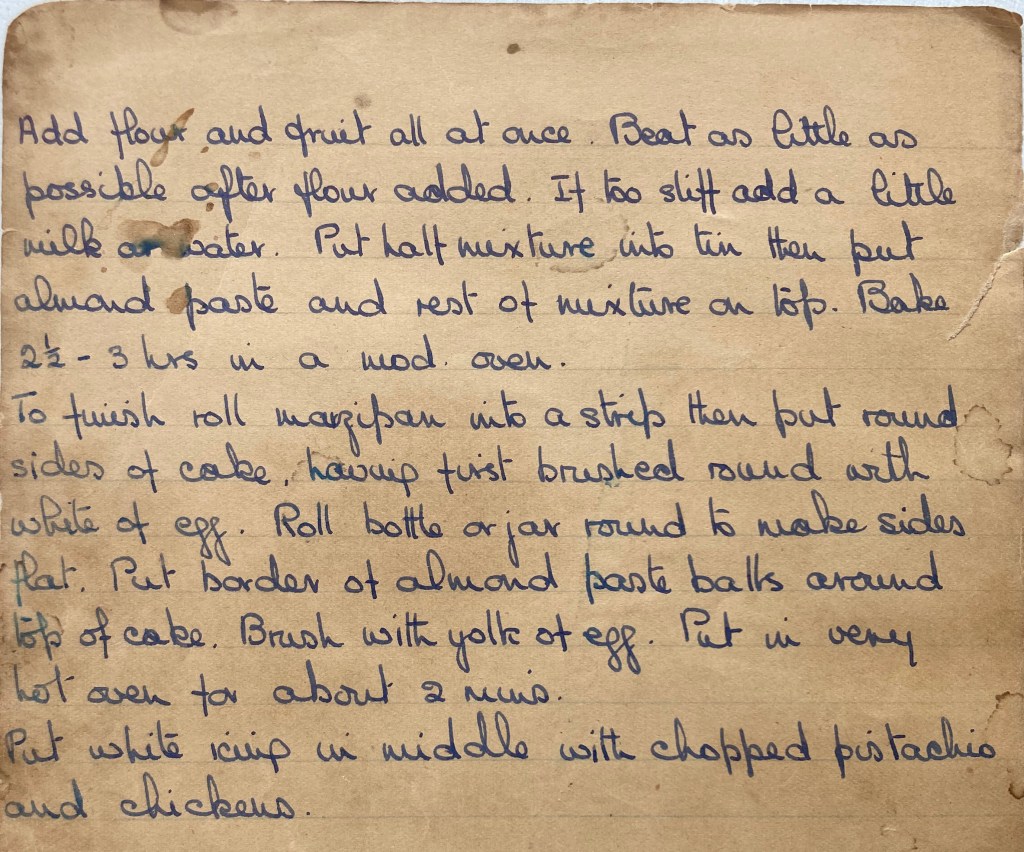 Add flour and fruit all at once. Beat as little as
possible after flour added. If too stiff add a little
milk or water. Put half mixture into tin then put
almond paste and rest of mixture on top. Bake
2½ - 3 hrs in a mod. oven.
To finish roll marzipan into a strip then put round
sides of cake, having first brushed round with
white of egg. Roll bottle or jar round to make sides
flat. Put border of almond paste balls around
top of cake. Brush with yolk of egg. Put in very
hot oven for about 2 mins.
Put white icing in middle with chopped pistachio
and chickens.